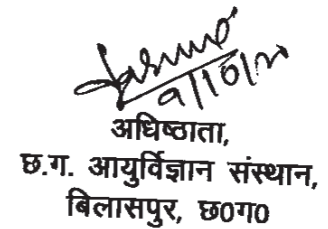 अधिष्ठाता,
छ.ग. आयुर्विज्ञान संस्थान,
बिलासपुर, छ0ग0